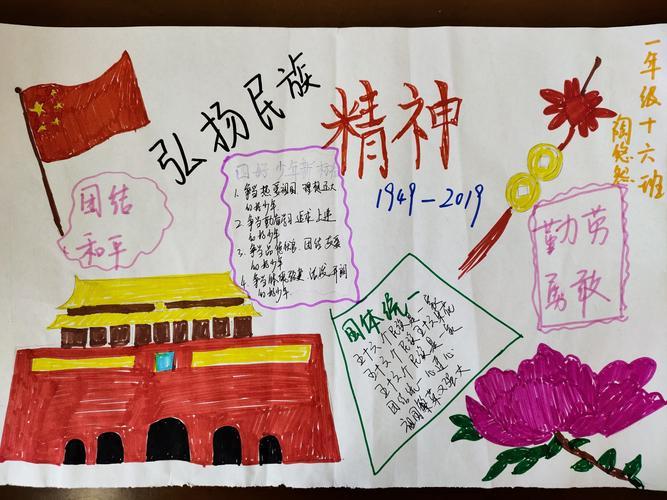 弘扬民族
精神
1949-2019
一年级十六班
陶悠然
团结
和平
四好少年新标
1. 争当热爱祖国 理想远大
的好少年
2. 争当勤奋学习 追求上进
的好少年
3. 争当品德优良 团结友爱
的好少年
4. 争当体魄强健 活泼开朗
的好少年.
勤劳
勇敢
团体统一
五十六个民族是一家
五十六个民族
五十六个民族是一家
团结统一心连心
祖国繁荣又强大